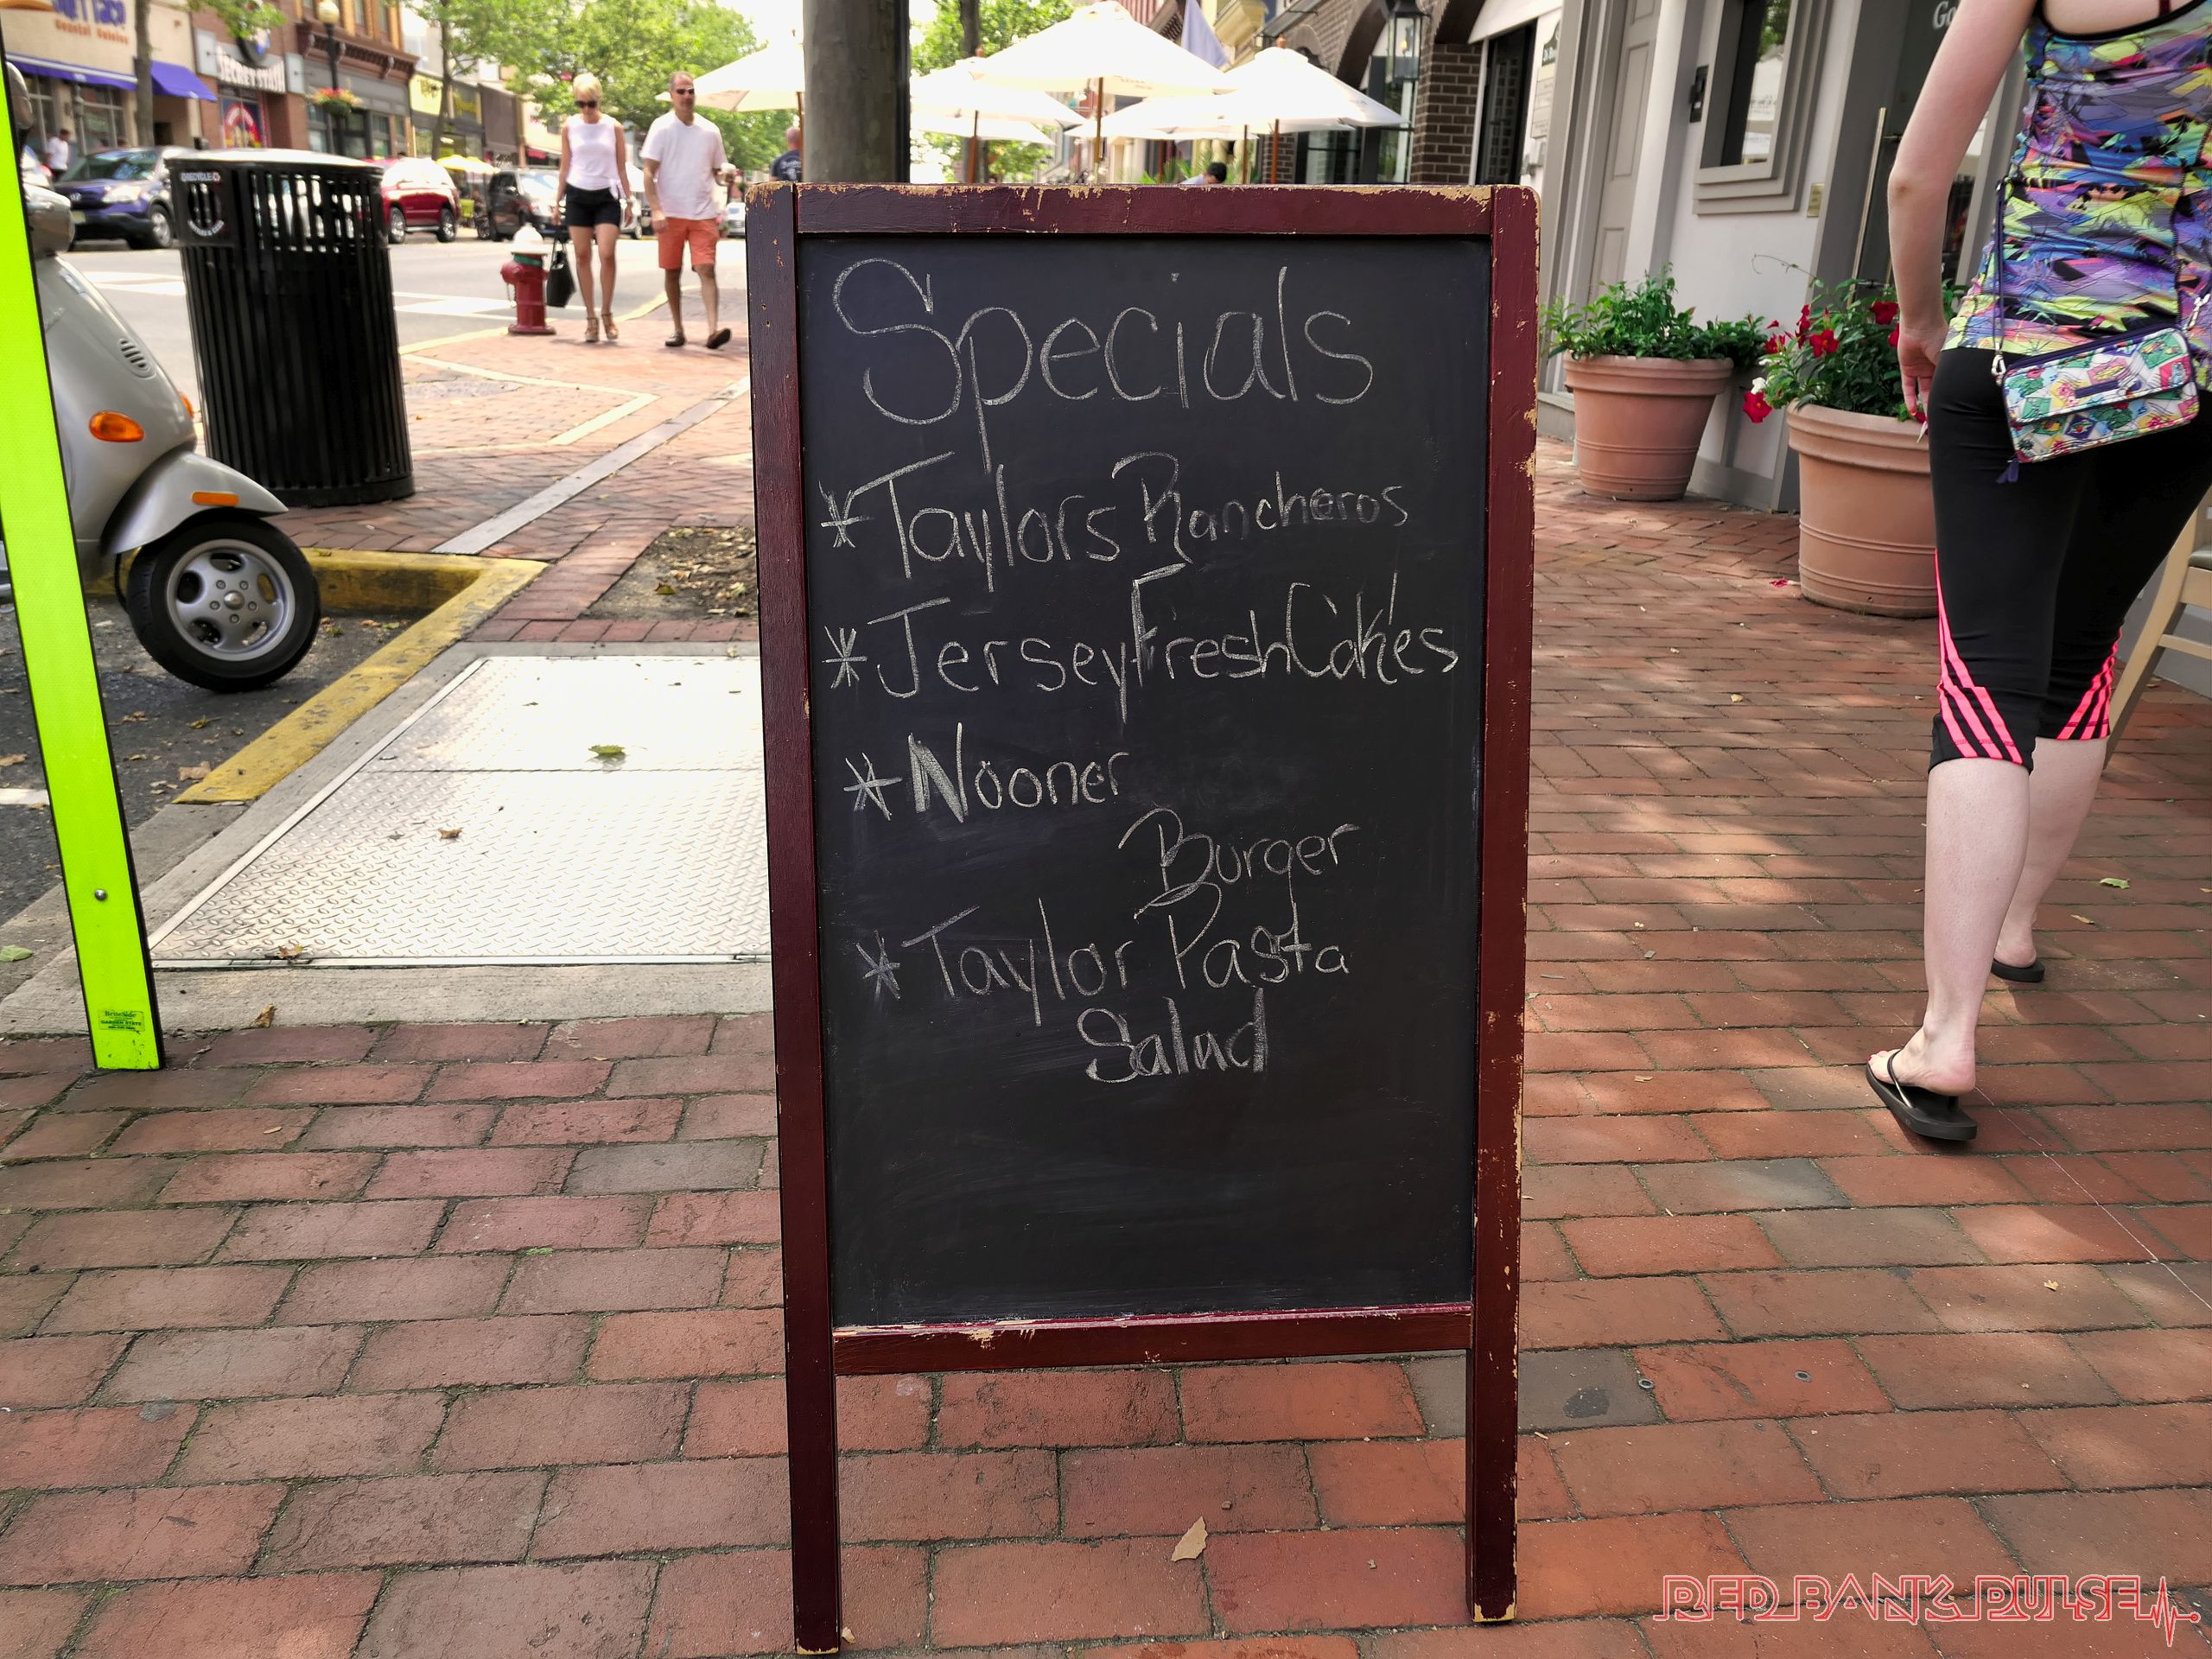 Specials
*Taylors Rancheros
*Jersey Fresh Cakes
*Nooner
Burger
*Taylor Pasta
Salad
SECRET STASH
RECYCLE
Go
RED BANK PULSE